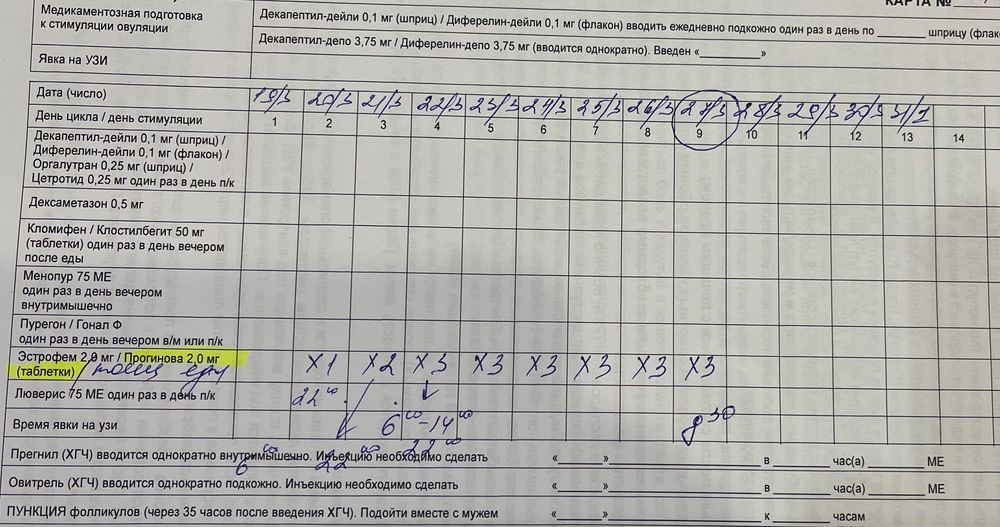 КАРТА №
Медикаментозная подготовка
к стимуляции овуляции
Декапептил-дейли 0,1 мг (шприц) / Диферелин-дейли 0,1 мг (флакон) вводить ежедневно подкожно один раз в день по ______ шприцу
Декапептил-депо 3,75 мг / Диферелин-депо 3,75 мг (вводится однократно). Введен «______»
Явка на УЗИ
Дата (число) 19/3 20/3 21/3 22/3 23/3 24/3 25/3 26/3 27/3 28/3 29/3 30/3
День цикла / день стимуляции 1 2 3 4 5 6 7 8 9 10 11 12 13 14
Декапептил-дейли 0,1 мг (шприц) /
Диферелин-дейли 0,1 мг (флакон) /
Оргалутран 0,25 мг (шприц) /
Цетротид 0,25 мг один раз в день п/к
Дексаметазон 0,5 мг
Кломифен / Клостилбегит 50 мг
(таблетки) один раз в день вечером
после еды
Менопур 75 МЕ
один раз в день вечером
внутримышечно
Пурегон / Гонал Ф
один раз в день вечером в/м или п/к
Эстрофем 2,0 мг / Прогинова 2,0 мг
(таблетки) / после еды X1 X2 X3 X3 X3 X3 X3 X3
Люверис 75 МЕ один раз в день п/к 22⁰⁰
Время явки на узи 6⁰⁰-14⁰⁰ 8³⁰
22⁰⁰
Прегнил (ХГЧ) вводится однократно внутримышечно. Инъекцию необходимо сделать «_____» __________ в _____ час(а) _____ МЕ
6⁰⁰ - 22⁰⁰
Овитрель (ХГЧ) вводится однократно подкожно. Инъекцию необходимо сделать «_____» __________ в _____ час(а) _____ МЕ
ПУНКЦИЯ фолликулов (через 35 часов после введения ХГЧ). Подойти вместе с мужем «_____» __________ к _____ часам